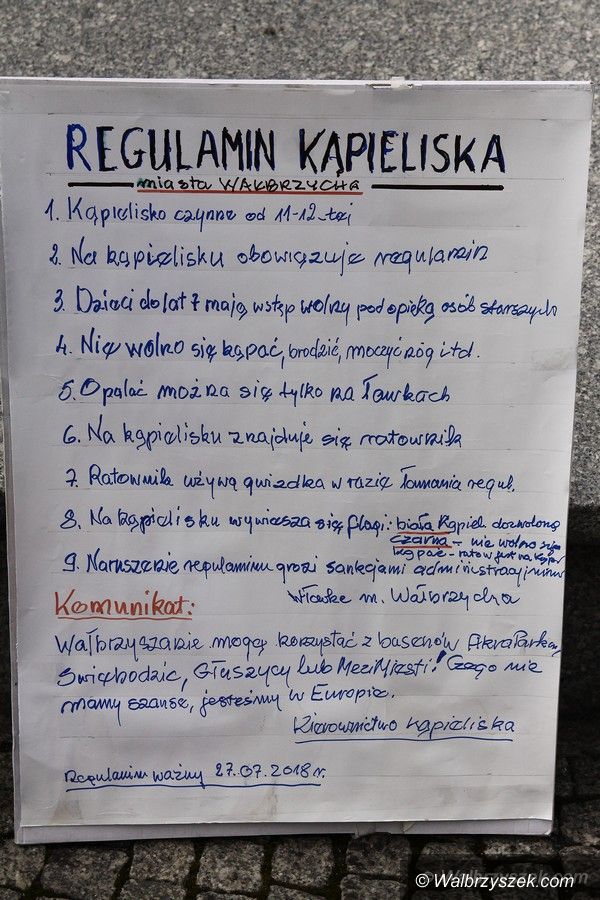 REGULAMIN KĄPIELISKA
miasta WAŁBRZYCHA
1. Kąpielisko czynne od 11-12-tej
2. Na kąpielisku obowiązuje regulamin
3. Dzieci do lat 7 mają wstęp wolny pod opieką osób starszych
4. Nie wolno się kąpać, brodzić, moczyć nóg itd.
5. Opalać można się tylko na ławkach
6. Na kąpielisku znajduje się ratownik
7. Ratownik używa gwizdka w razie łamania regul.
8. Na kąpielisku wywiesza się flagi: biała Kąpiel dozwolona
czarna - nie wolno się
kąpać - ratow jest na
9. Naruszenie regulaminu grozi sankcjami administracyjnymi
Komunikat:
m. Wałbrzycha
Wałbrzyszanie mogą korzystać z basenów
Świebodzic, Głuszycy lub ! Czego nie
mamy szansę, jesteśmy w Europie.
Kierownictwo Kąpieliska
Regulamin ważny 27.07.2018 r.
© Walbrzyszek.com
Walbrzyszek.com